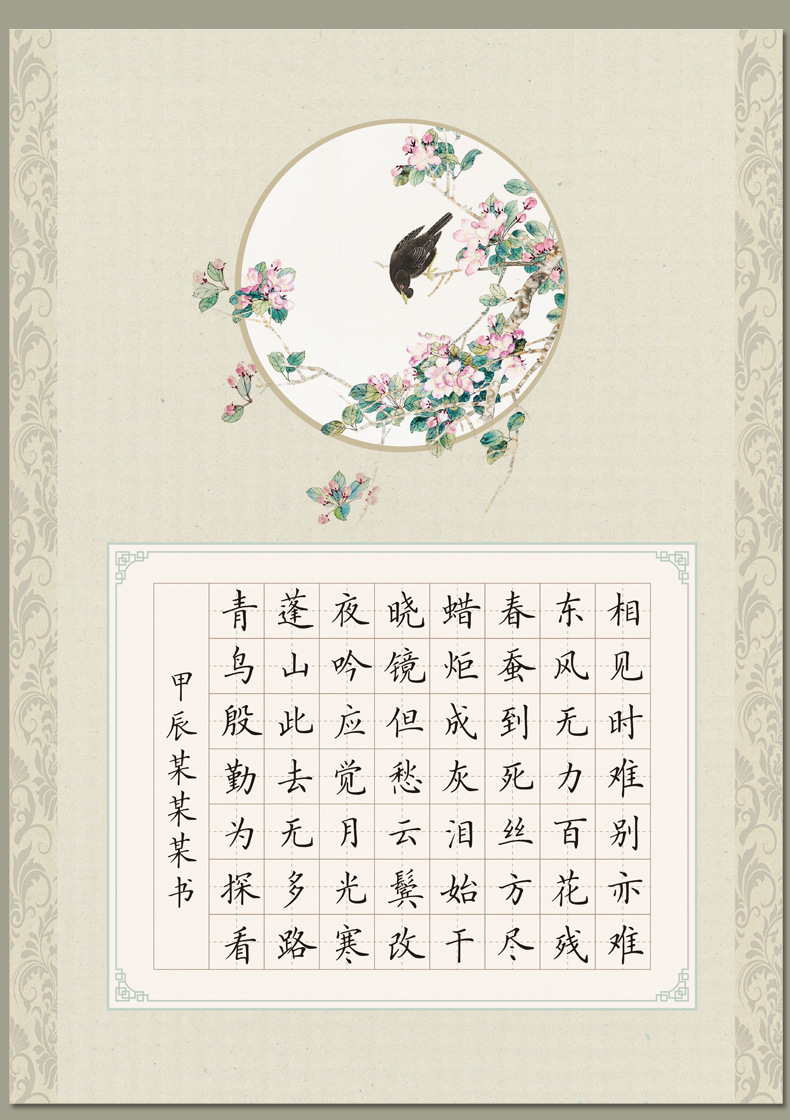 相见时难别亦难
东风无力百花残
春蚕到死丝方尽
蜡炬成灰泪始干
晓镜但愁云鬓改
夜吟应觉月光寒
蓬山此去无多路
青鸟殷勤为探看
甲辰某某某书